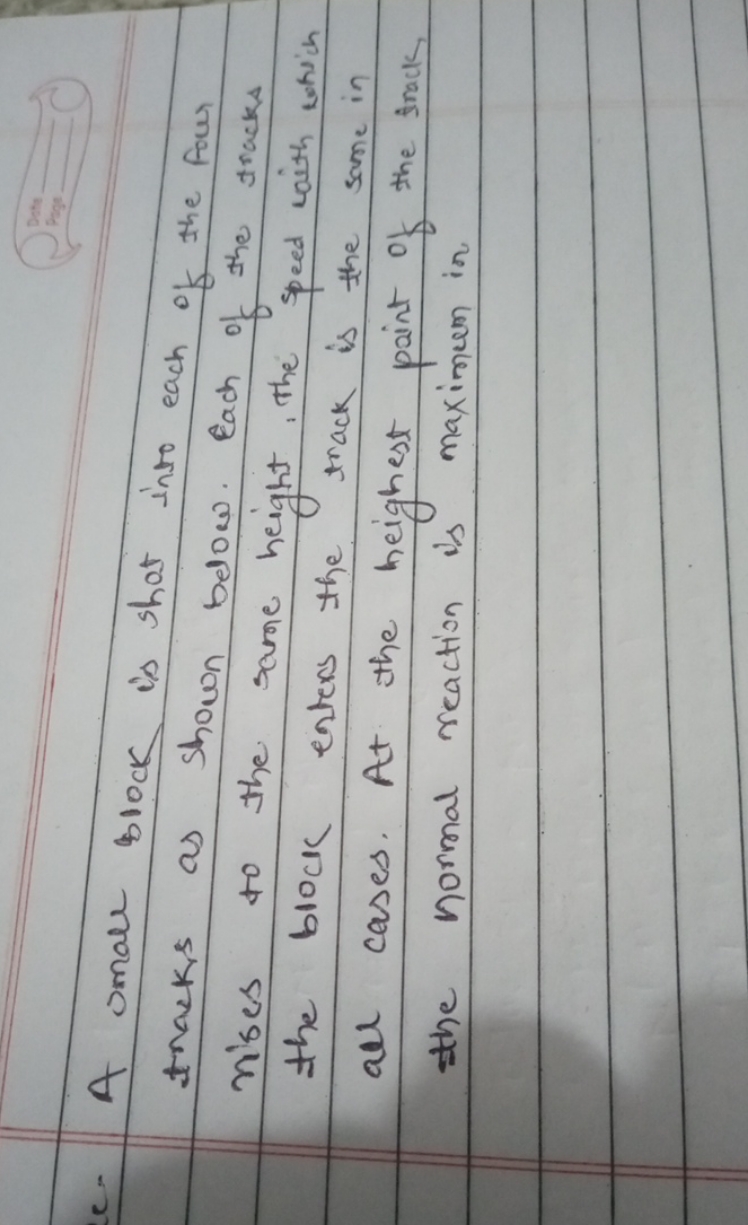 Date
Page
A small block is shot into each of the four
tracks as shown below. Each of the tracks
rises to the same height, the speed with which
the block enters the track is the same in
all cases. At the heighest point of the track,
the normal reaction is maximum in